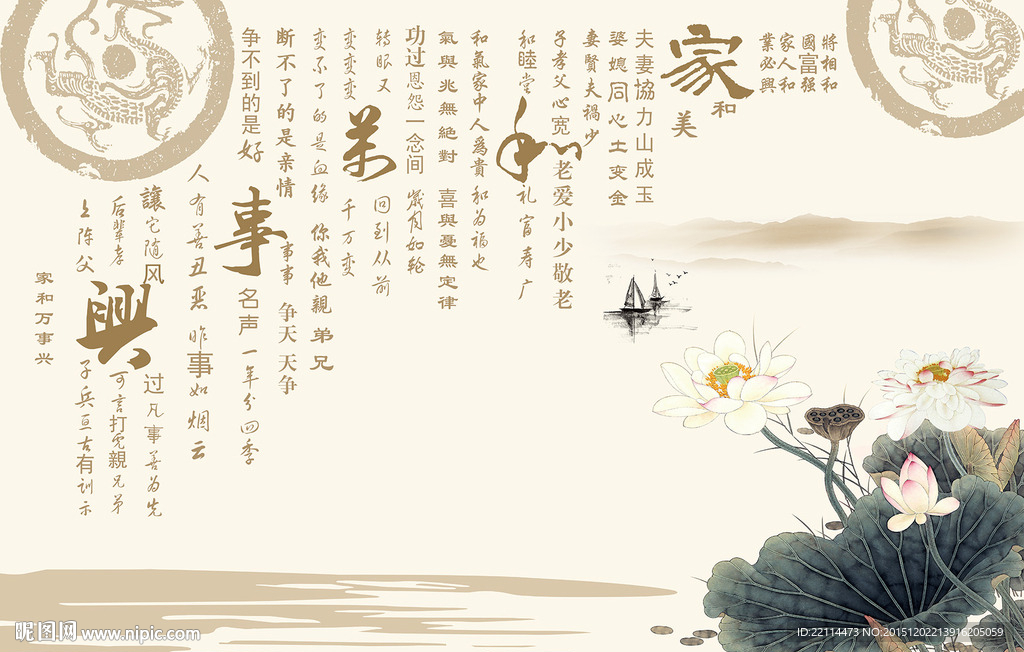 將相和
國富强
家人和
業必興
家和
美
夫妻協力山成玉
婆媳同心土变金
妻賢夫禍少
子孝父心宽 老爱小少敬老
和睦堂 和 礼富寿广
和氣家中人爲貴 和为福也
氣與兆無絶對 喜與憂無定律
功过恩怨一念间 歲月如轮
转眼又 回到从前
变变变 萬 千万变
变不了的是血缘 你我他親弟兄
断不了的是亲情 事事 争天天争
争不到的是好 事 名声 一年分四季
人有善丑恶 昨事如烟云
讓它随风 过凡事善为先
后辈孝 興 可言打冤親兄弟
上阵父 子兵亘古有训示
家和万事兴
昵图网 www.nipic.com
ID:22114473 NO:20151202213916205059